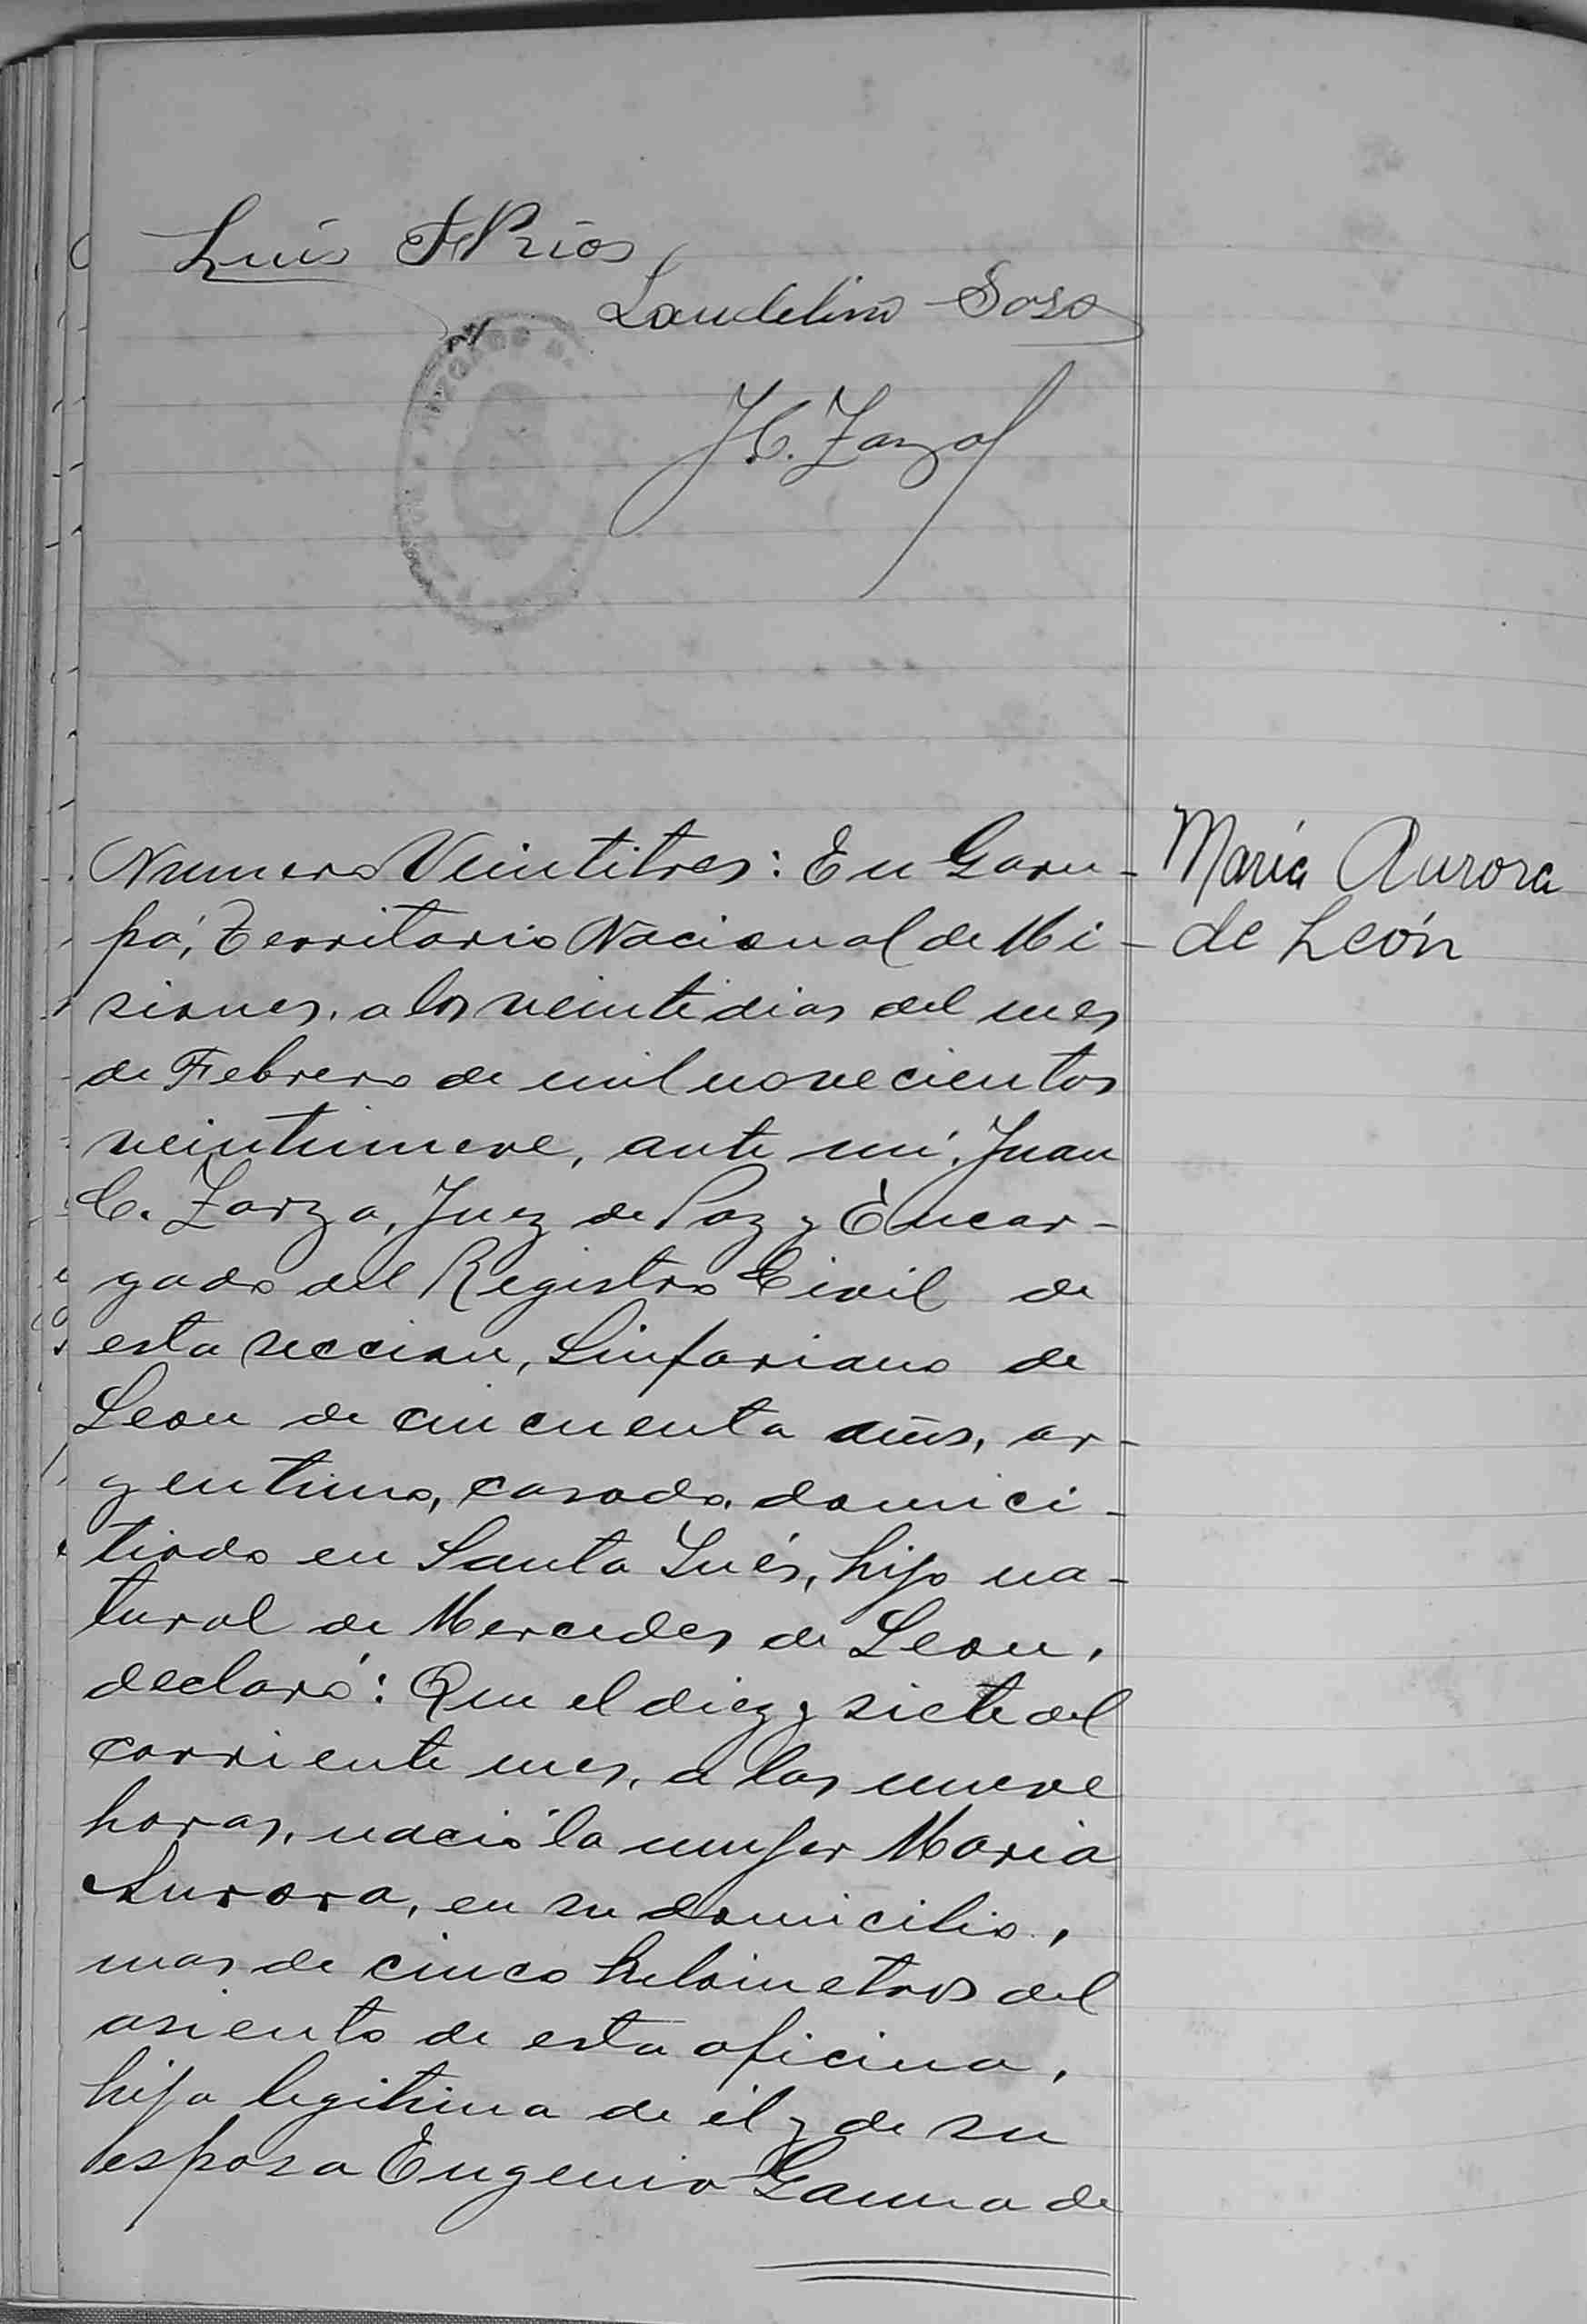 Luis F Rios
Laudelino Sosa
J. C. Zarza
JUZGADO
Numero Veintitres: En Garu-
pá, Territorio Nacional de Mi-
siones, a los veinte dias del mes
de Febrero de mil novecientos
veintinueve, ante mi, Juan
C. Zarza, Juez de Paz y Encar-
gado del Registro Civil de
esta seccion, Sinforiano de
Leon de cincuenta años, ar-
gentino, casado, domici-
liado en Santa Inés, hijo na-
tural de Mercedes de Leon,
declaró: Que el diez y siete del
corriente mes, a las nueve
horas, nació la mujer Maria
Aurora, en su domicilio,
mas de cinco kilometros del
asiento de esta oficina,
hija legitima de él y de su
esposa Eugenia Gauna de
María Aurora
de León